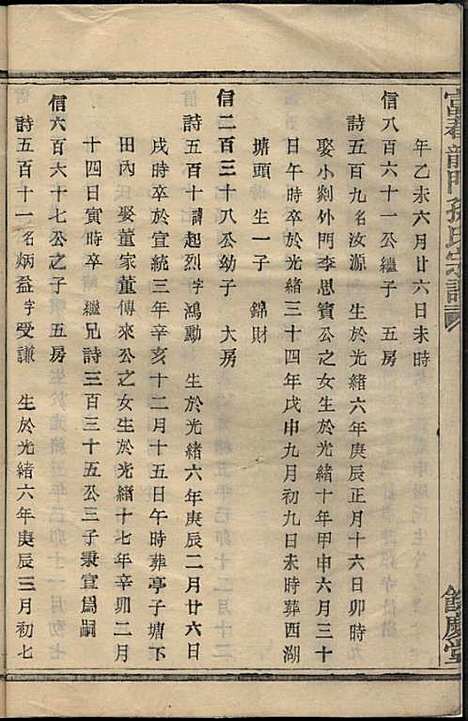 富春龍門孫氏宗譜
餘慶堂
年乙未六月廿六日未時
信八百六十一公繼子 五房
詩五百九名汝源 生於光緒六年庚辰正月十六日卯時
娶小剡外門李思賓公之女生於光緒十年甲申六月三十
日午時卒於光緒三十四年戊申九月初九日未時葬西湖
塘頭 生一子 錦財
信二百三十八公幼子 大房
詩五百十諱起烈字鴻勳 生於光緒六年庚辰二月廿六日
戌時卒於宣統三年辛亥十二月十五日午時葬亭子塘下
田內 娶董家董傳來公之女生於光緒十七年辛卯二月
十四日寅時卒 繼兄詩三百三十五公三子秉宣爲嗣
信六百六十七公之子 五房
詩五百十一名炳益字受謙 生於光緒六年庚辰三月初七